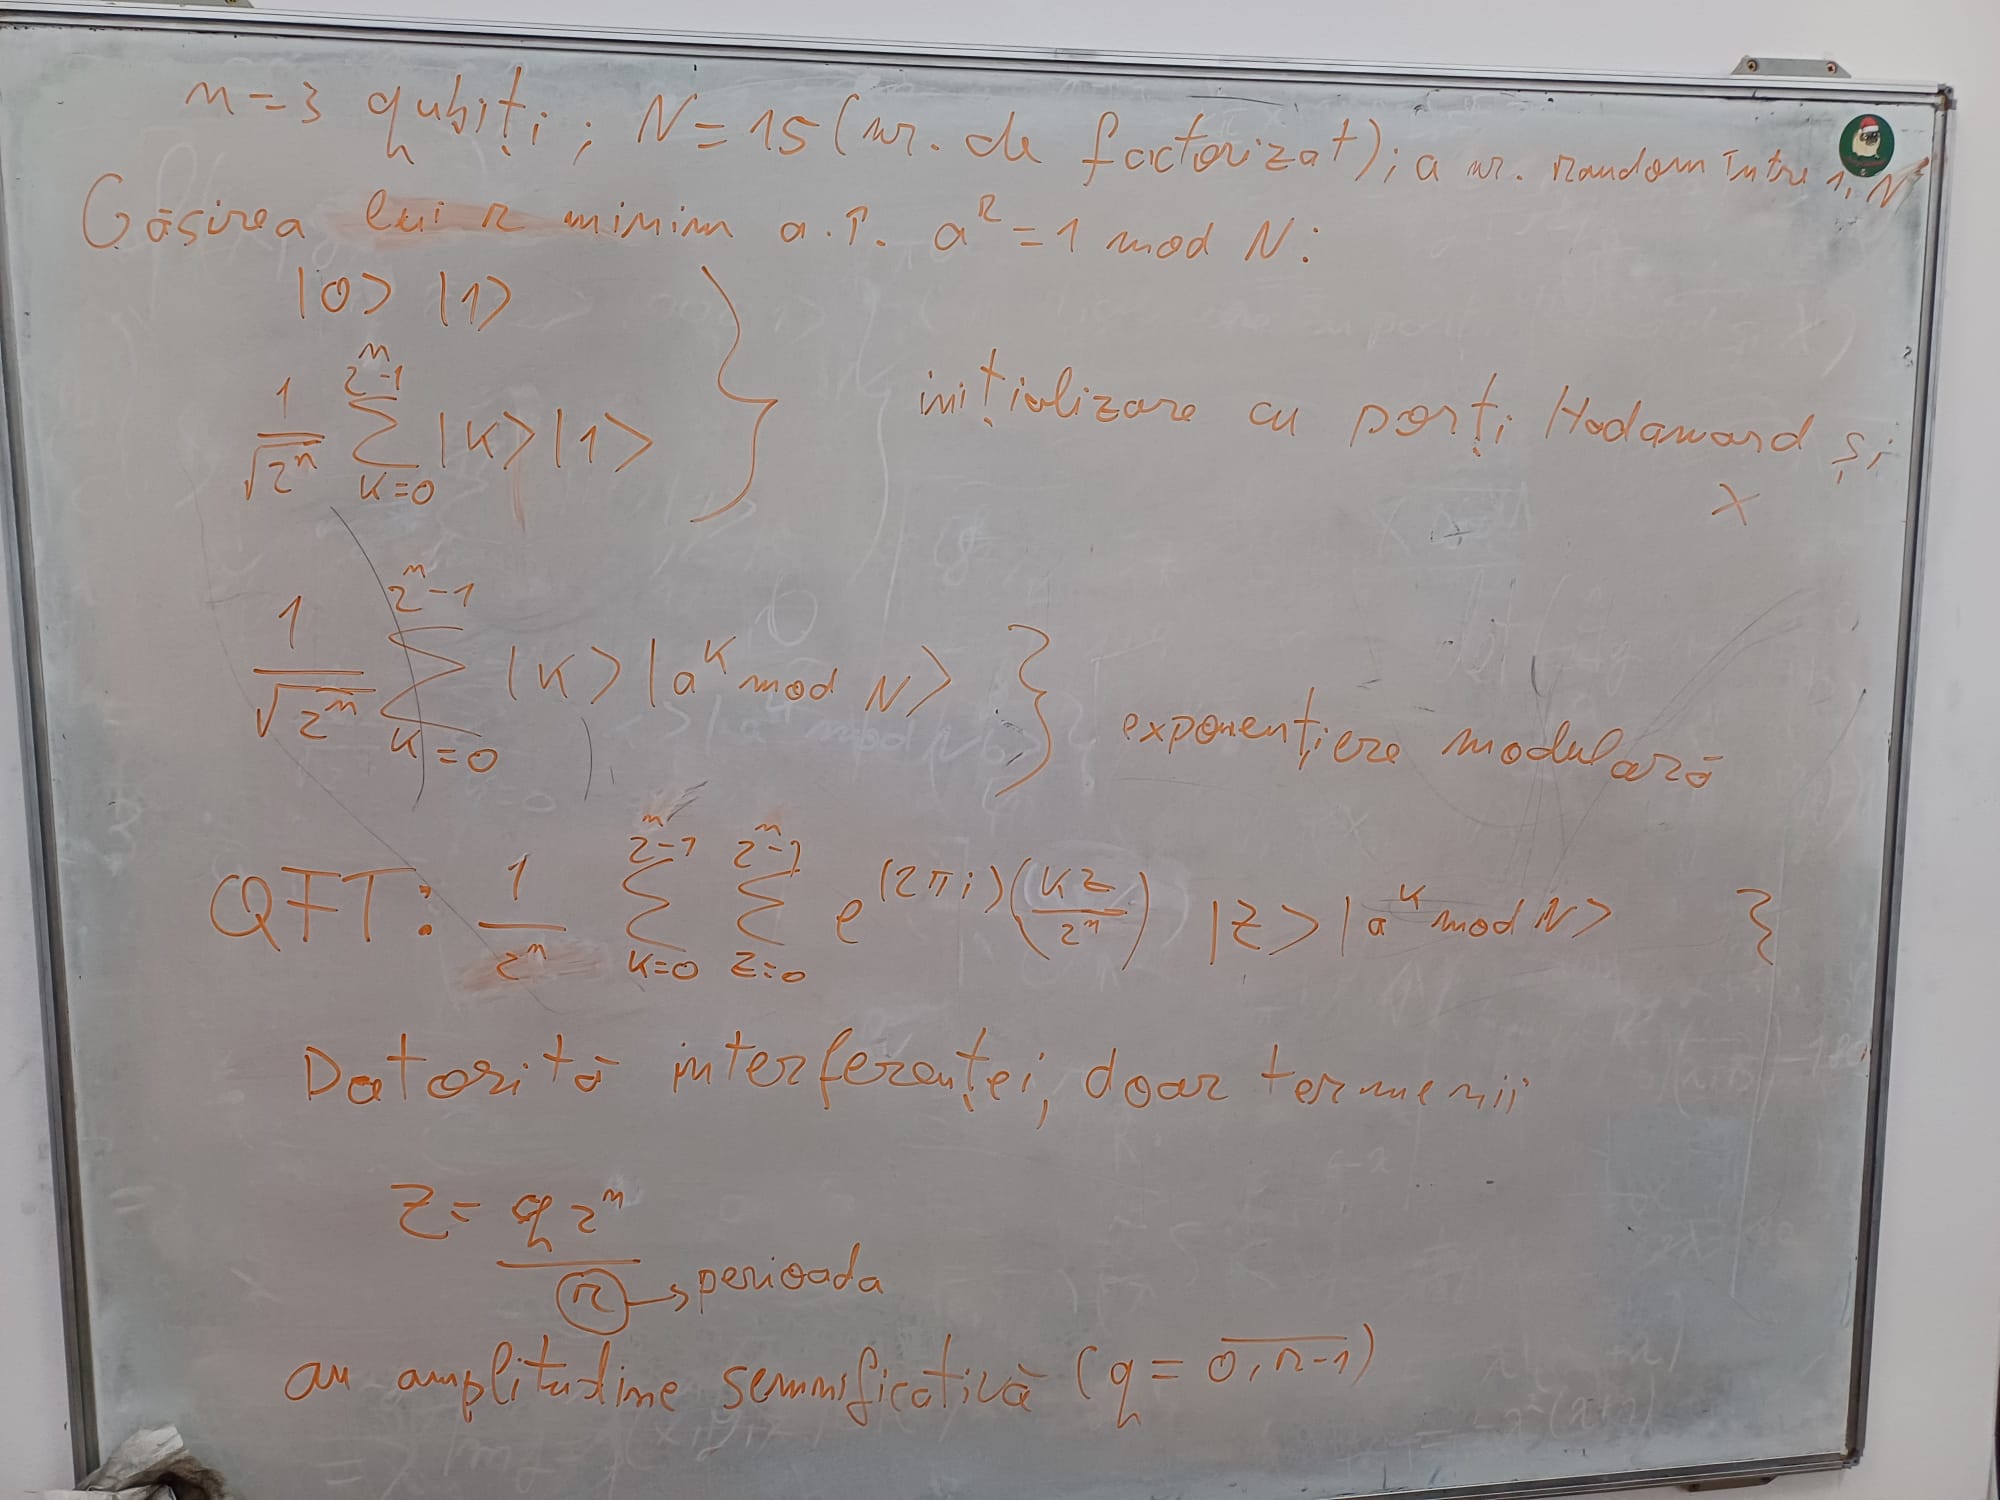 n=3 qubiți; N=15 (nr. de factorizat); a nr. random între 1, N
Găsirea lui r minim a.î. a^r = 1 mod N:
|0> |1>
1/√(2^n) ∑_{k=0}^{2^n-1} |k>|1>
inițializare cu porți Hadamard și
X
1/√(2^n) ∑_{k=0}^{2^n-1} |k>|a^k mod N>
} exponențiere modulară
QFT: 1/2^n ∑_{k=0}^{2^n-1} ∑_{z=0}^{2^n-1} e^{(2πi)(kz/2^n)} |z>|a^k mod N> }
Datorită interferenței, doar termenii
z = q 2^n / r → perioada
au amplitudine semnificativă (q = 0, r-1)